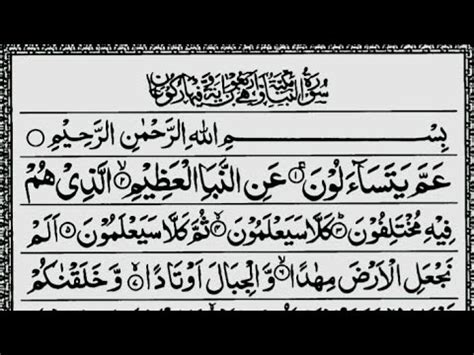 سُوْرَةُ النَّبَاِ مَكِّيَّةٌ وَّهِيَ اَرْبَعُوْنَ اٰيَةً وَّفِيْهَا رُكُوْعَانِ
بِسْمِ اللهِ الرَّحْمٰنِ الرَّحِيْمِ
عَمَّ يَتَسَآءَلُوْنَ ۚ﴿۱﴾ عَنِ النَّبَاِ الْعَظِيْمِ ۙ﴿۲﴾ الَّذِيْ هُمْ
فِيْهِ مُخْتَلِفُوْنَ ؕ﴿۳﴾ كَلَّا سَيَعْلَمُوْنَ ۙ﴿۴﴾ ثُمَّ كَلَّا سَيَعْلَمُوْنَ ﴿۵﴾ اَلَمْ
نَجْعَلِ الْاَرْضَ مِهٰدًا ۙ﴿۶﴾ وَّ الْجِبَالَ اَوْتَادًا ۪ۙ﴿۷﴾ وَّ خَلَقْنٰكُمْ